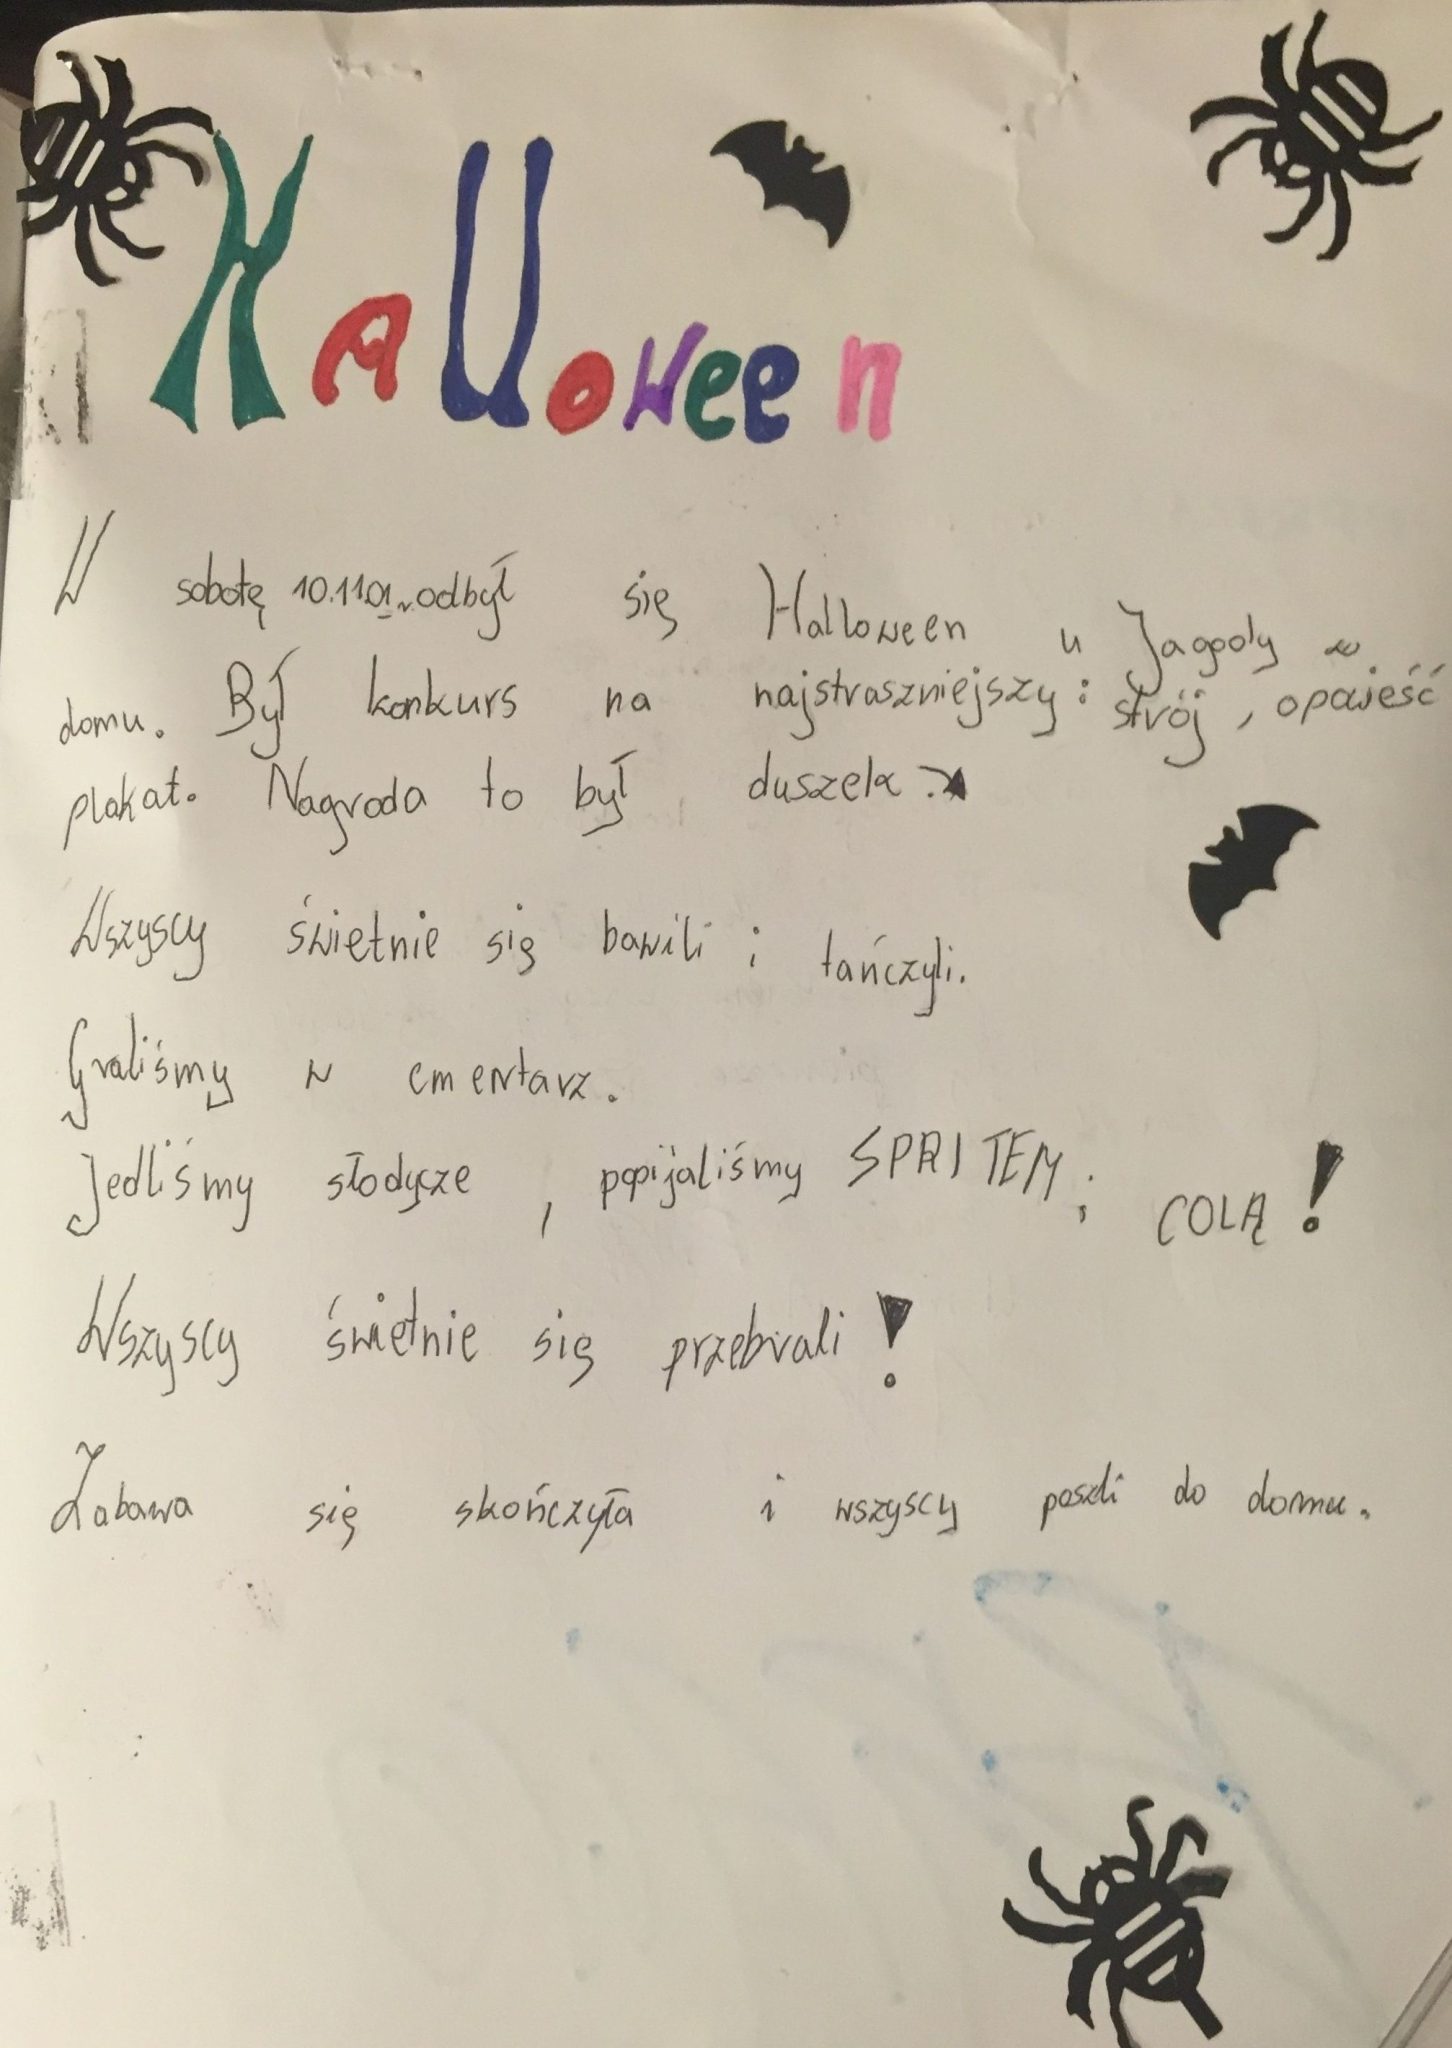 Halloween
W sobotę 10.11.01r. odbył się Halloween u Jagody w
domu. Był konkurs na najstraszniejszy: strój, opowieść
plakat. Nagroda to był duszek
Wszyscy świetnie się bawili i tańczyli.
Graliśmy w cmentarz.
Jedliśmy słodycze, popijaliśmy SPRITEM i COLĄ!
Wszyscy świetnie się przebrali!
Zabawa się skończyła i wszyscy poszli do domu.